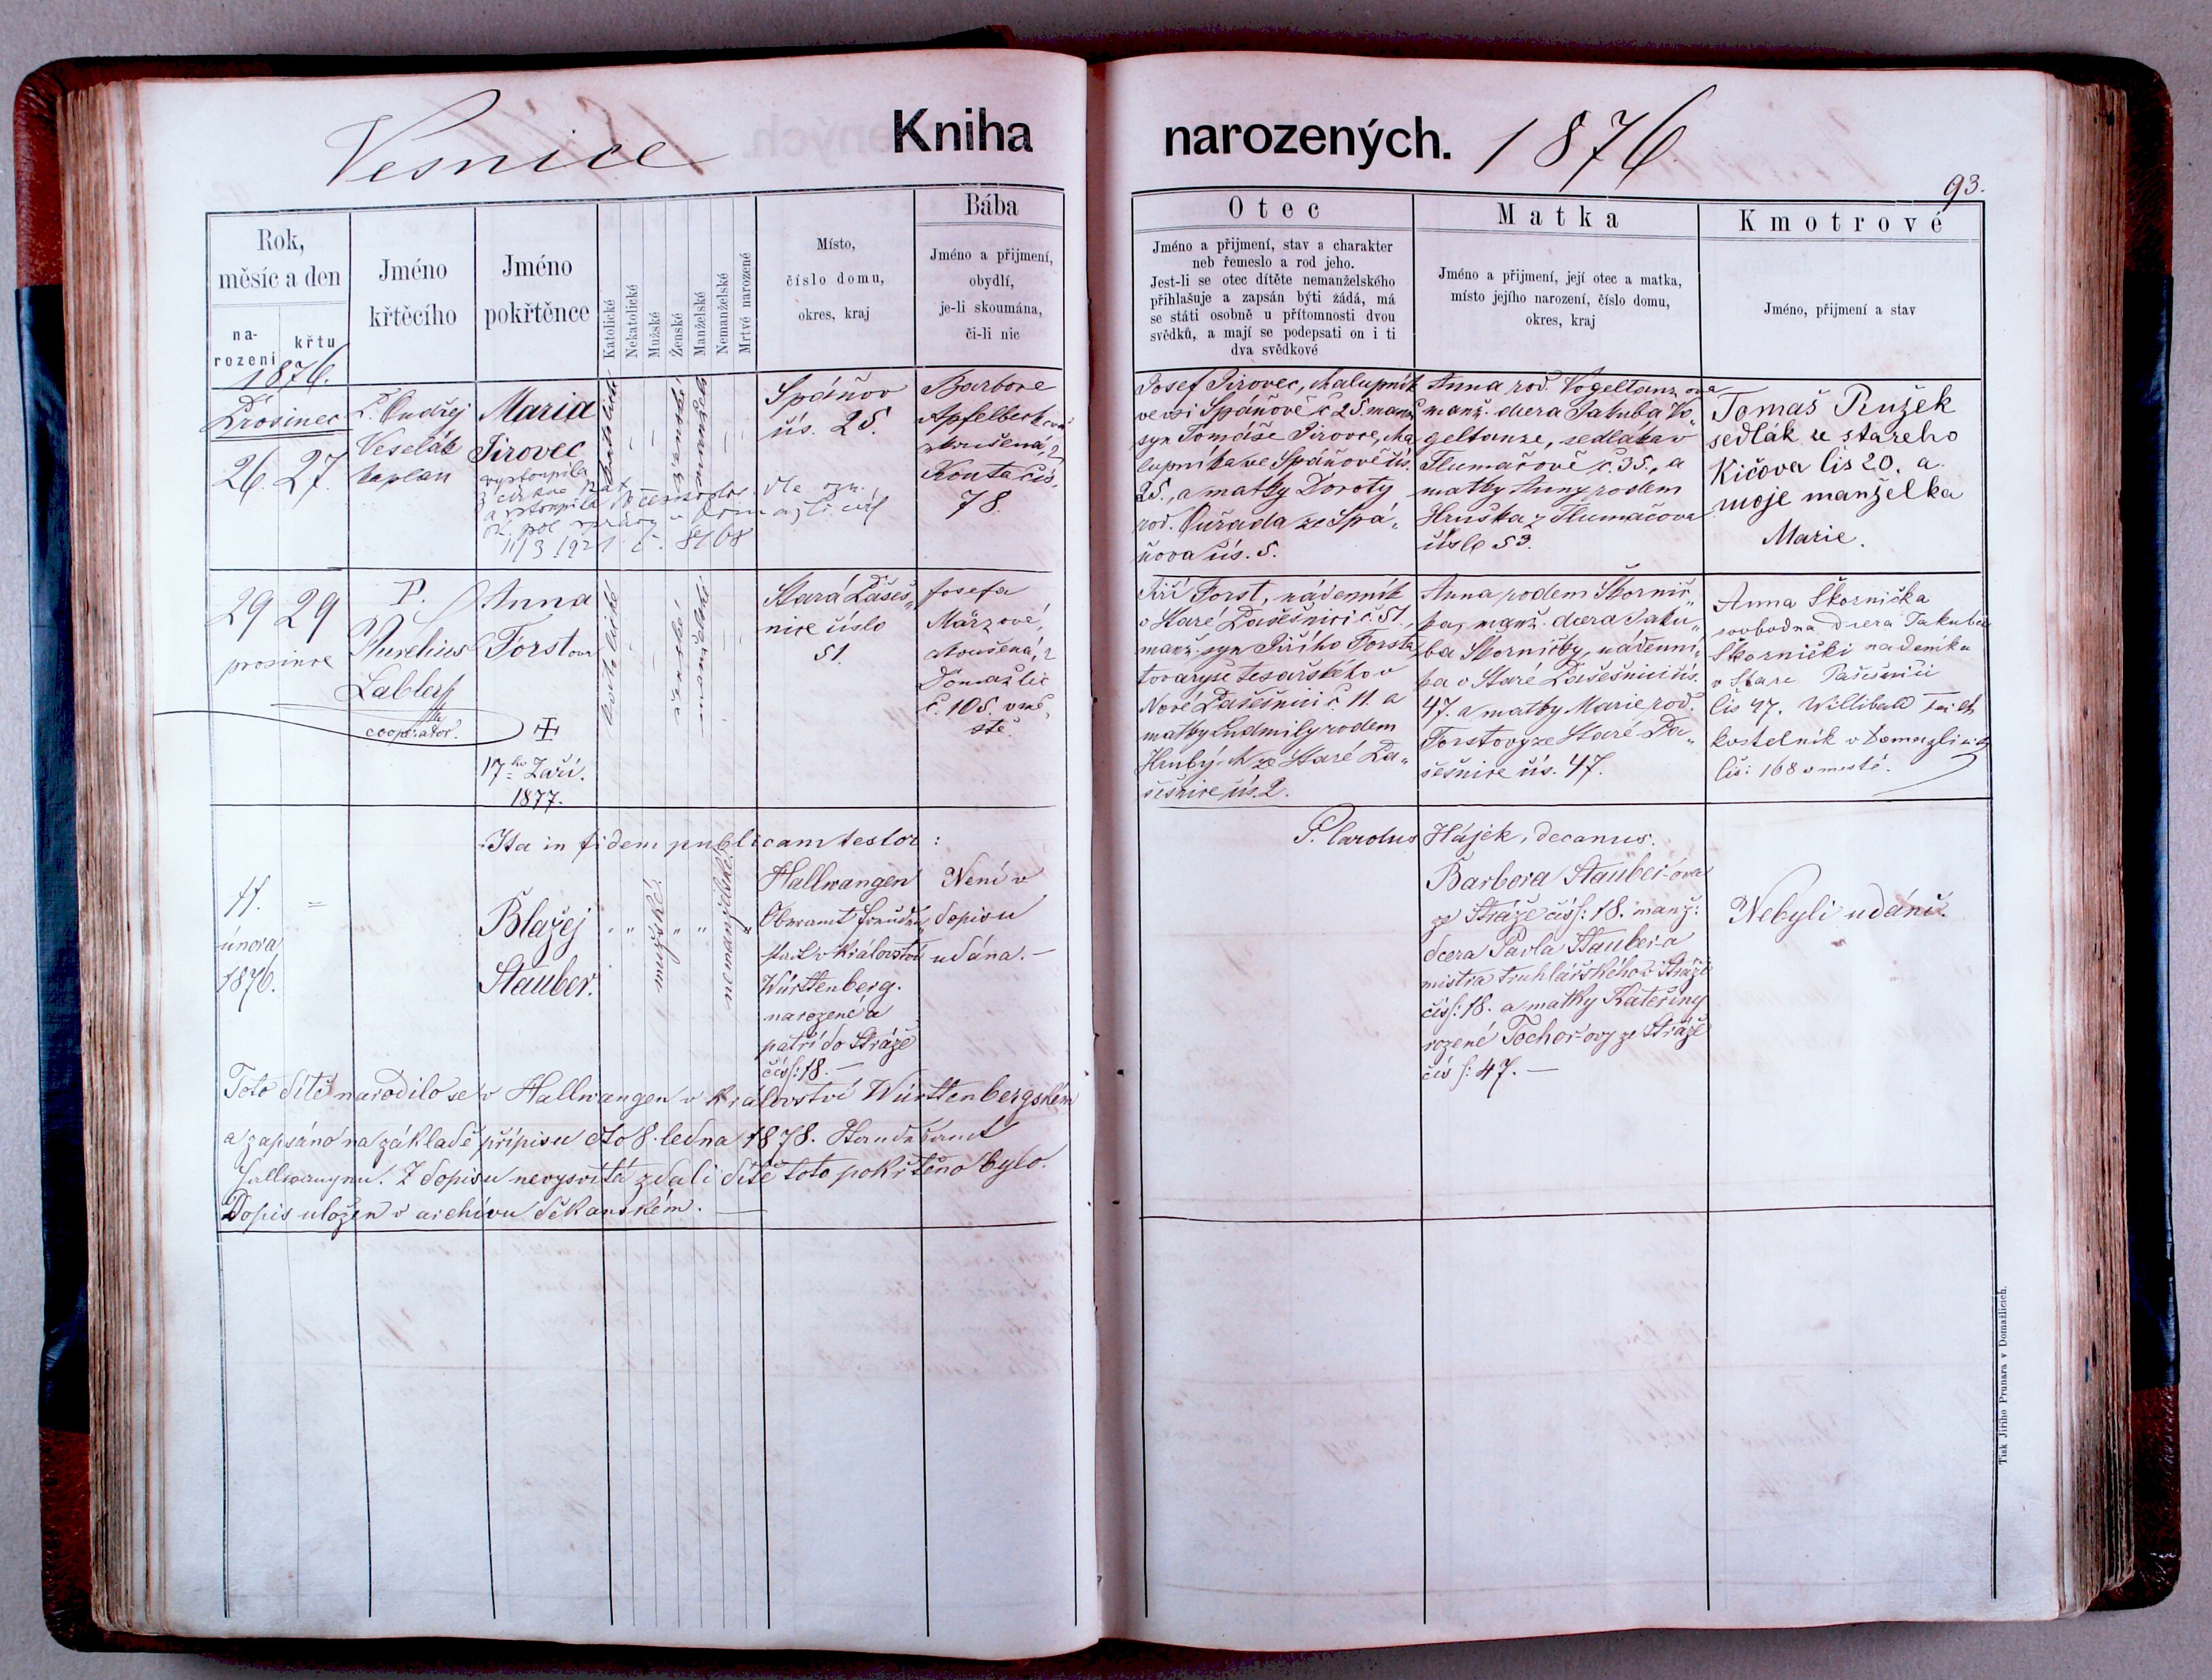 Vesnice
Kniha
narozených. 1876
93.
Rok,
měsíc a den
na-
rození
křtu
1876.
Jméno
křtěcího
Jméno
pokřtěnce
Katolické
Nekatolické
Mužské
Ženské
Manželské
Nemanželské
Mrtvé narozené
Místo,
číslo domu,
okres, kraj
Bába
Jméno a přijmení,
obydlí,
je-li skoumána,
či-li nic
Otec
Jméno a přijmení, stav a charakter
neb řemeslo a rod jeho.
Jest-li se otec dítěte nemanželského
přihlašuje a zapsán býti žádá, má
se státi osobně u přítomnosti dvou
svědků, a mají se podepsati on i ti
dva svědkové
Matka
Jméno a přijmení, její otec a matka,
místo jejího narození, číslo domu,
okres, kraj
Kmotrové
Jméno, přijmení a stav
Prosinec
26. 27.
P. Ondřej
Veselák
kaplan
Maria
Pirovec
vystoupila
z církve
a vstoupila
11/3 1921 č. 8468
katolické
ženské
manželské
Spáňov
čís. 25.
Barbora
Apfelbeck
zkoušená, z
Kouta čís.
78.
Josef Pirovec, chalupník
ve vsi Spáňově č 25. manž
syn Tomáše Pirovce, cha
lupníka ve Spáňově čís.
25., a matky Doroty
roz. Kuřada ze Spá„
ňova čís. 5.
Anna roz. Vogeltanzova
manž. dcera Jakuba Vo„
geltanze, sedláka v
Tlumačově č. 35., a
matky Anny rodem
Hruška z Tlumačova
číslo 53.
Tomaš Ružek
sedlák ze stareho
Kičova čis 20. a.
moje manželka
Marie.
29 29
prosince
P.
Aurelius
Labler
cooperator.
Anna
Forstova
17ho Září.
1877.
katolické
ženské
manželské
Stará Pašeš„
nice číslo
51.
Josefa
Märzové,
zkoušená, z
Domažlic
č. 105. v mě„
stě.
Jiří Forst, nádenník
v Staré Pašešnici č. 51.,
manž. syn Jiřího Forsta
tovaryše tesařského v
Nové Pašešnici č. 11. a
matky Ludmily rodem
Hrubý ze Staré Pa„
šešnice čís. 2.
Anna rodem Škornič„
ka, manž. dcera Jaku„
ba Škorničky, nádenní„
ka v Staré Pašešnici čís.
47. a matky Marie roz.
Forstovy ze Staré Pa„
šešnice čís. 47.
Anna Škornička
svobodna dcera Jakuba
Škornički nadenika
v Stare Pašešnici
čis 47. Willibald
kostelník v Domazlicích
čís: 168 v městě.
Ita in fidem publicam testor:
P. Carolus Hájek, decanus.
11.
února
1876.
Blažej
Stauber.
mužské.
nemanželské.
Hallwangen
Oberamt Freuden„
stadt v Království
Württenberg.
narozené a
patří do Stráže
čís: 18. —
Není v
dopisu
udána. —
Barbora Stauber-ova
ze Stráže čís: 18. manž:
dcera Pavla Stauber-a
mistra truhlářského v Stráži
čís: 18. a matky Kateřiny
rozené Tochor-ovy ze Stráže
čís: 47. —
Nebyli udáni.
Toto dítě narodilo se v Hallwangen v Království Württenbergském
a zapsáno na základě přípisu dto 8. ledna 1878.
Z dopisu nevysvitá zdali dítě toto pokřtěno bylo.
Dopis uložen v archivu děkanském. —
Tisk Jiřího Prunara v Domažlicích.